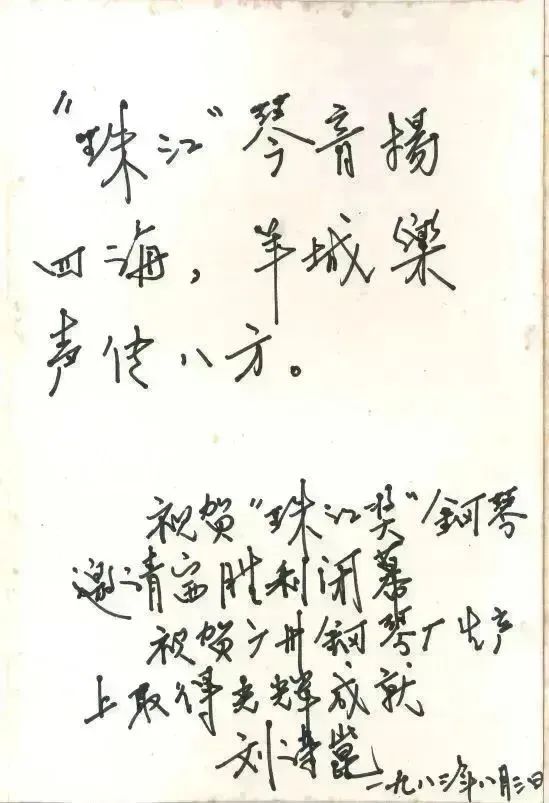 “珠江”琴音揚
四海，羊城樂
声传八方。
祝贺“珠江奖”钢琴
邀请赛胜利闭幕
祝贺广州钢琴厂生产
上取得光辉成就
刘诗昆
一九八三年八月三日